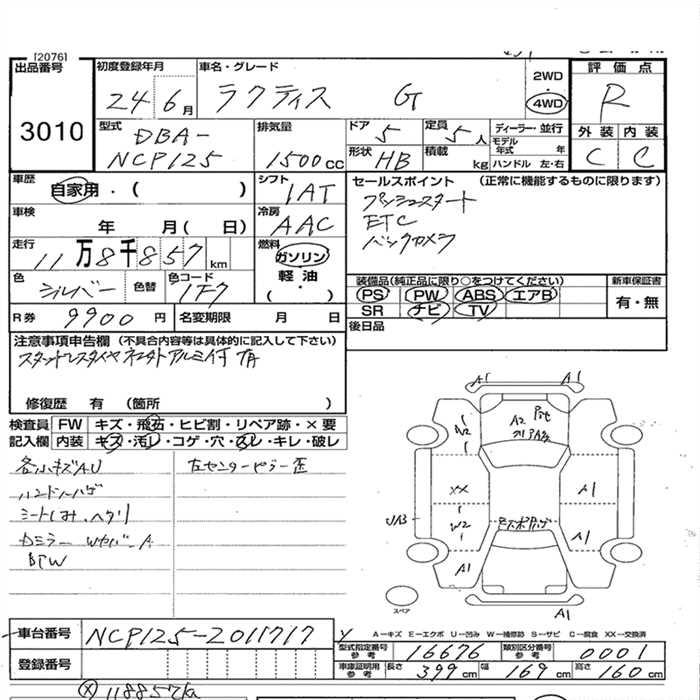 [2076]
出品番号 初度登録年月 車名・グレード 2WD 評価点
3010 24 6月 ラクティス G 4WD R
型式 排気量 ドア 定員 ディーラー・並行 外装 内装
DBA- 5 5人 モデル年式 年 C C
NCP125 1500cc 形状 HB 積載 kg ハンドル 左・右
車歴 シフト セールスポイント (正常に機能するものに限ります)
自家用・( ) 1AT プッシュスタート
車検 冷房 ETC
年 月( 日) AAC バックカメラ
走行 燃料
11万8千857km ガソリン
軽・油
( )
色 色替 色コード 装備品(純正品に限り○をつけてください) 新車保証書
シルバー 1F7 PS PW ABS エアB 有・無
SR ナビ TV
R券 9900円 名変期限 月 日 後日品
注意事項申告欄 (不具合内容等は具体的に記入して下さい)
修復歴 有 (箇所 )
検査員 FW キズ・飛石・ヒビ割・リペア跡・×要
記入欄 内装 キズ・汚レ・コゲ・穴・スレ・キレ・破レ
各小キズAU 左センターピラー歪
ハンドルハゲ
シートしみ、ヘタリ
A1 A1
A2
A2
XX A1
UA3 W2 A1
A1
A1
スペア
A−キズ E−エクボ U−凹み W−補修跡 S−サビ C−腐食 XX−交換済
車台番号 NCP125-2011717
型式指定番号参考 16676 類別区分番号参考 0001
登録番号 車庫証明用参考 長さ 399cm 幅 169cm 高さ 160cm
118857km